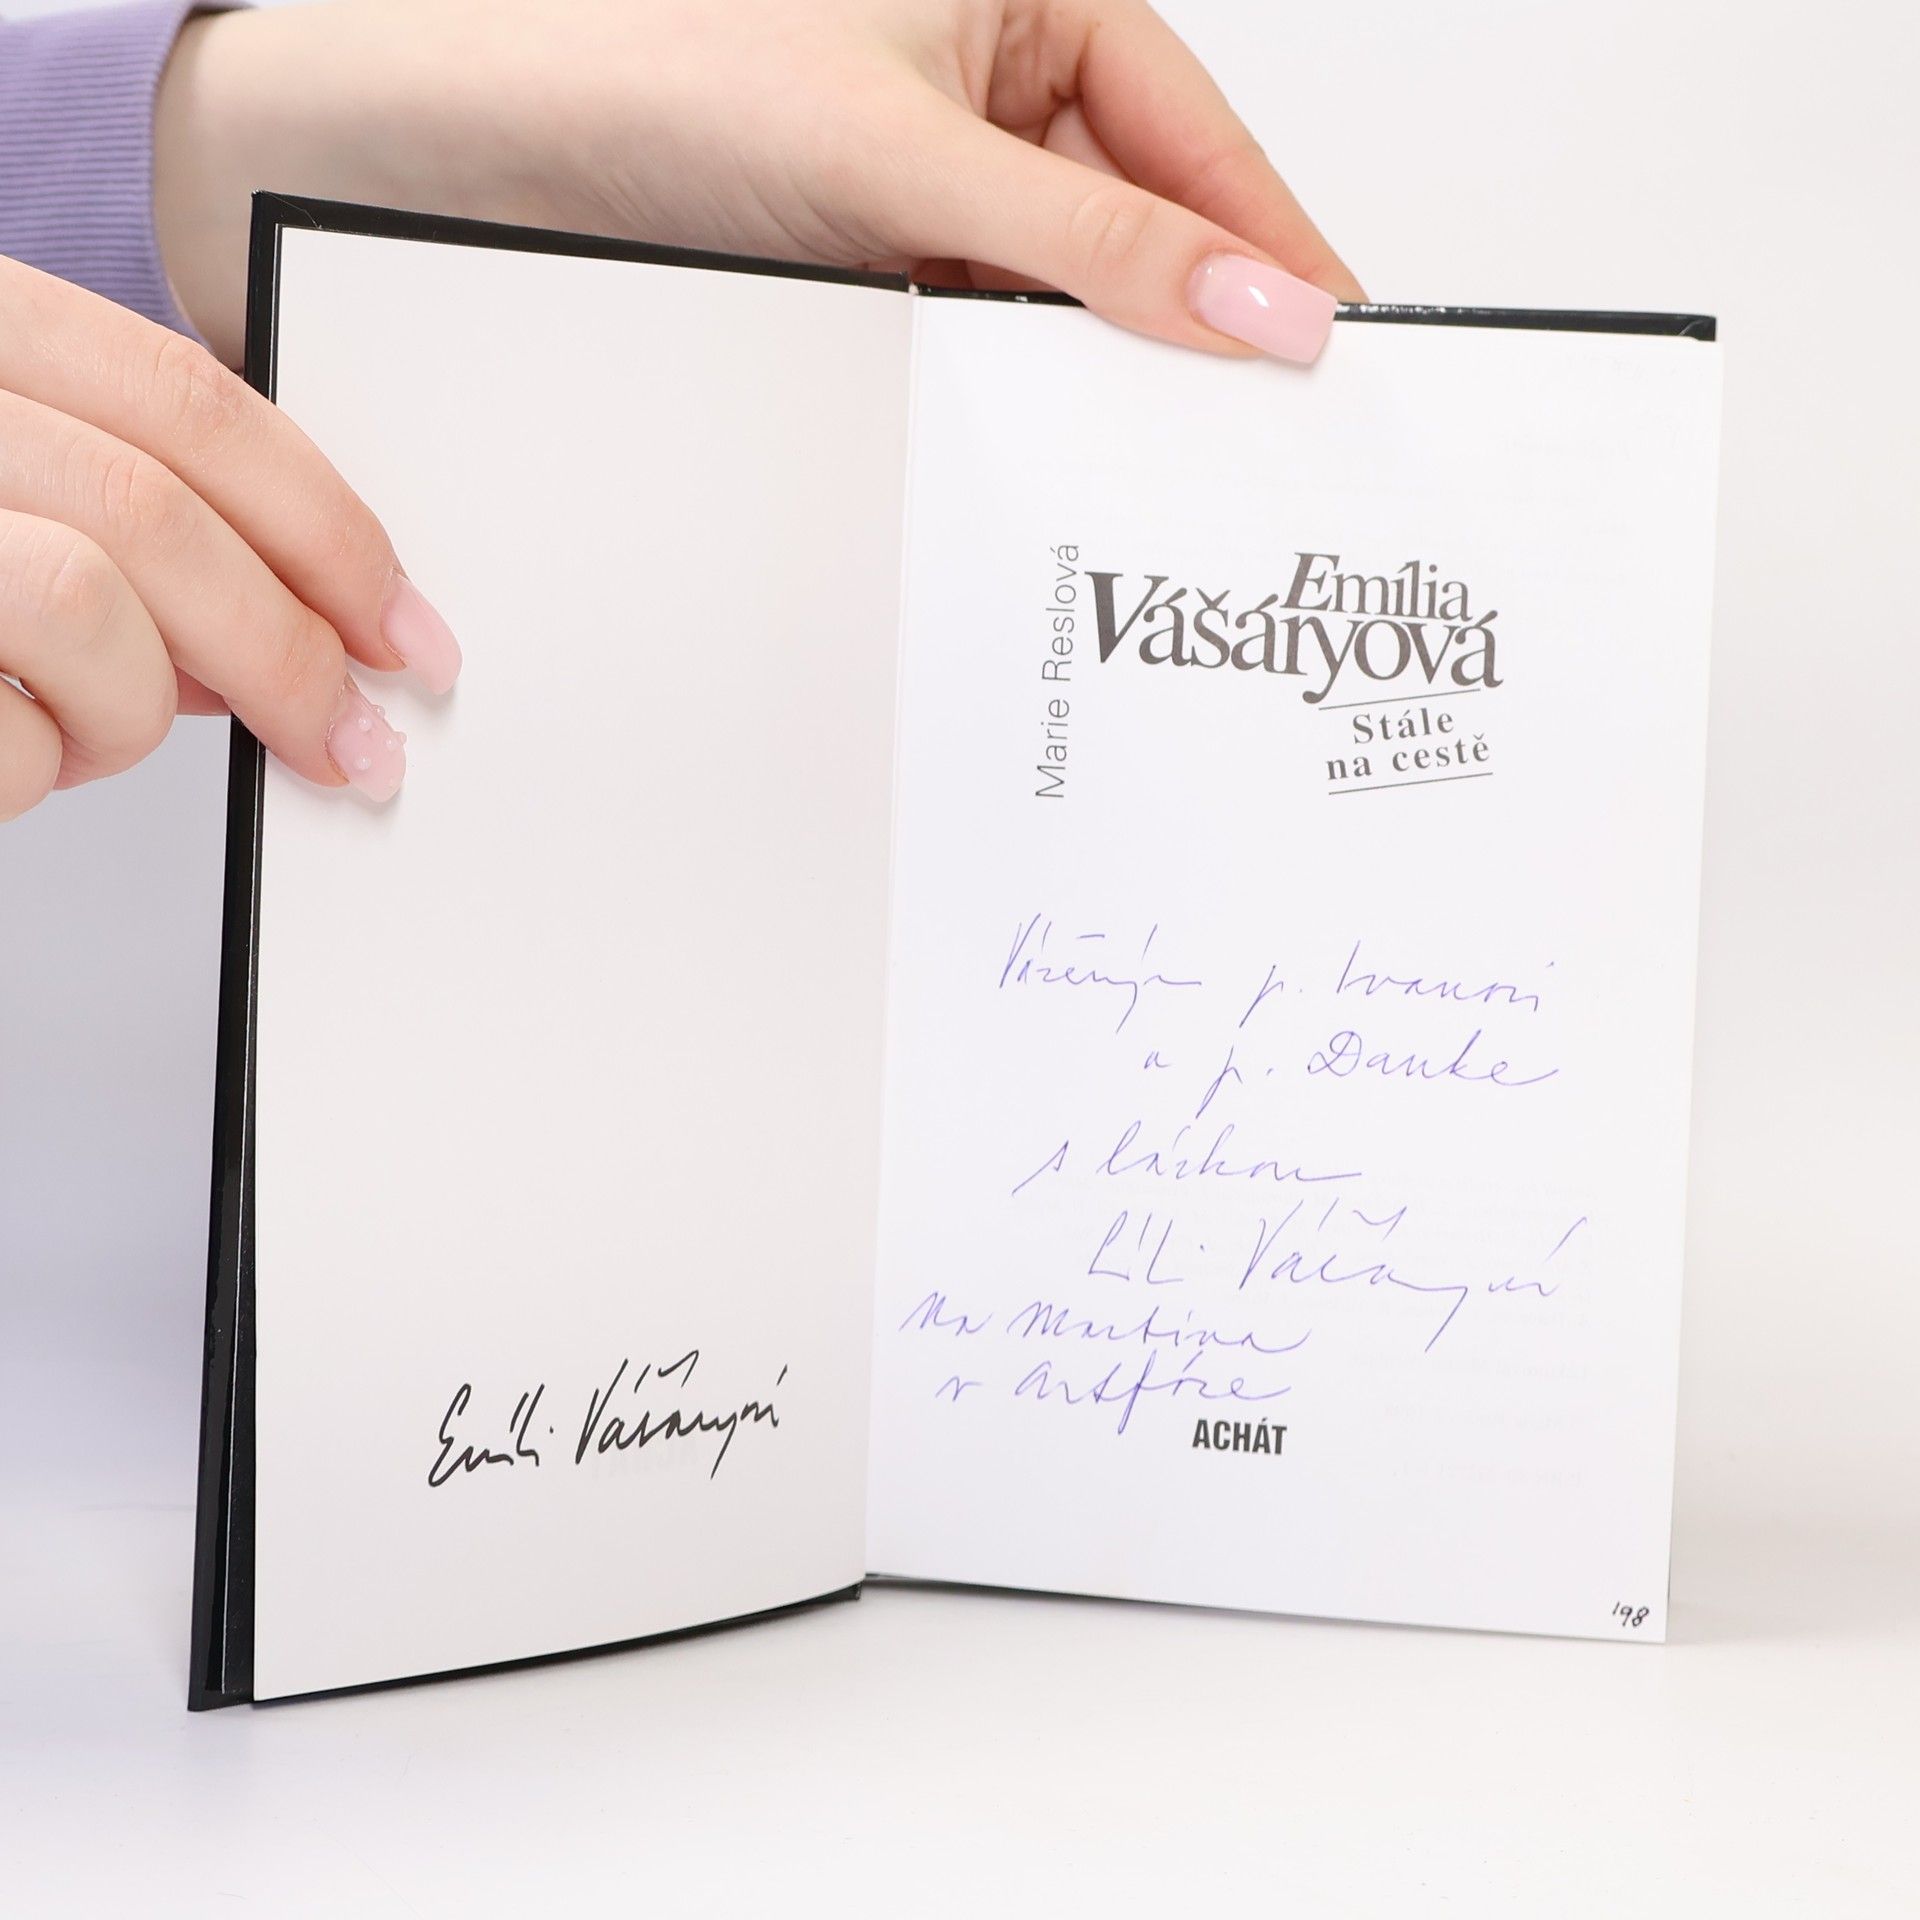 Emíli Vášáryová
Marie Reslová
Emília
Vášáryová
Stále
na cestě
Váženým p. Ivanovi
a p. Danke
s láskou
Líli Vášáryová
Na Martina
v Artfóre
ACHÁT
'98